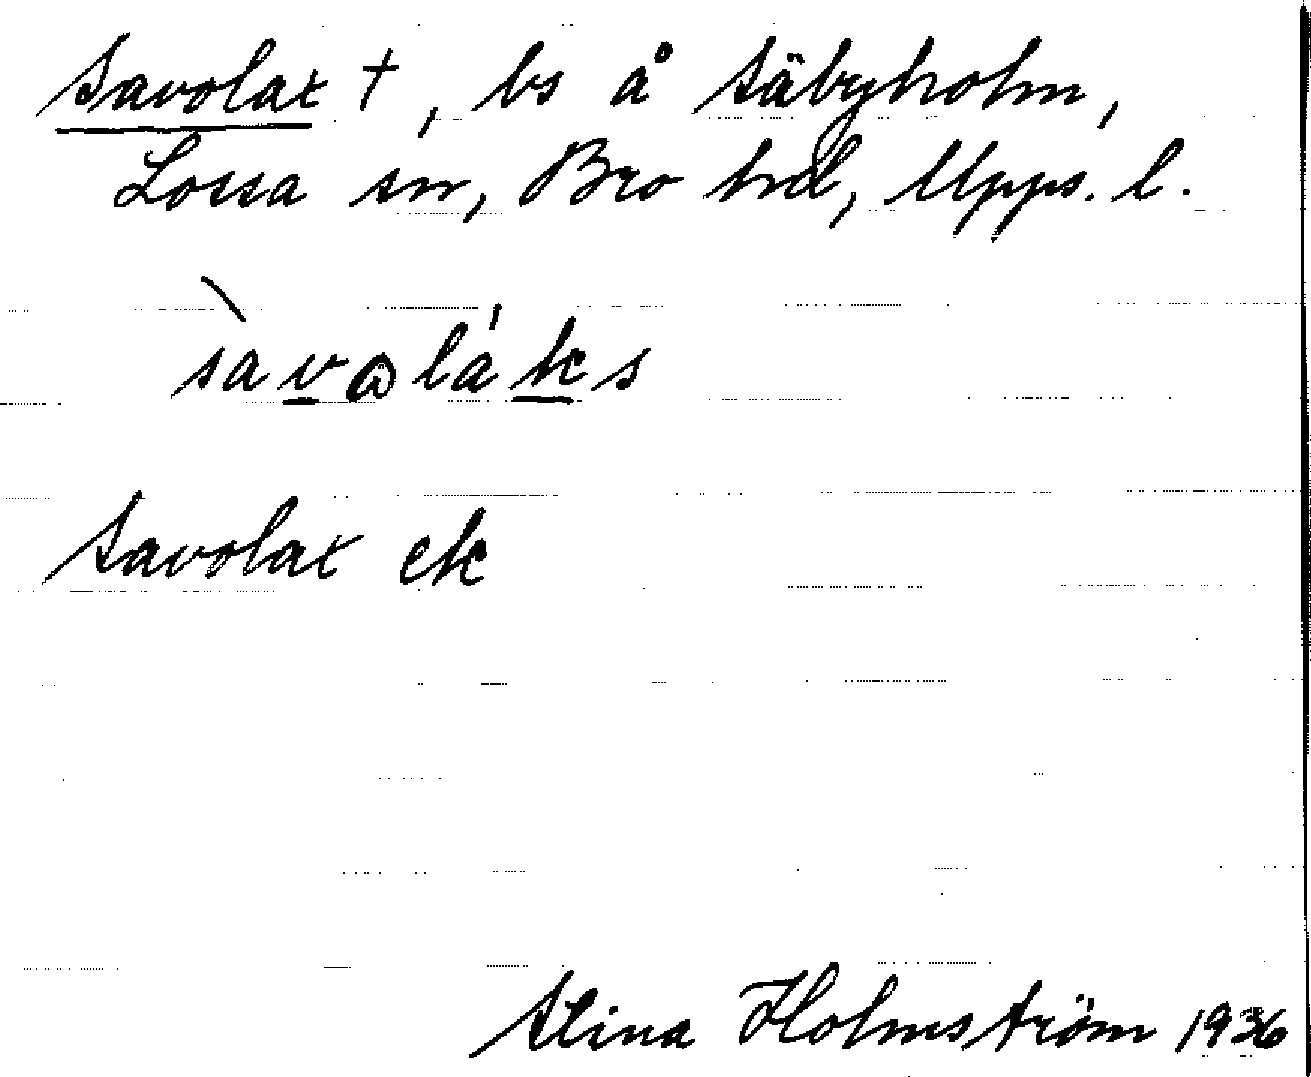 Savolax †, bs å Säbyholm,
Lossa sn, Bro hd, Upps. l.
sàvαláks
Savolax ek
Stina Holmström 1936